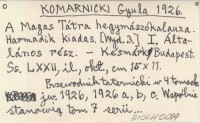 KOMARNICKI Gyula 1926.
A Magas Tátra hegymászókalauza.
Harmadik kiadás. [Wyd. 3.] I, Álta-
lános rész. – Késmárk, Budapest.
Ss. LXXII, il., okł., cm 15 × 11.
Przewodnik taternicki w 4 tomach
j.w. 1926, 1926 a, b, c, Wspólnie
stanowią tom 7 serii...